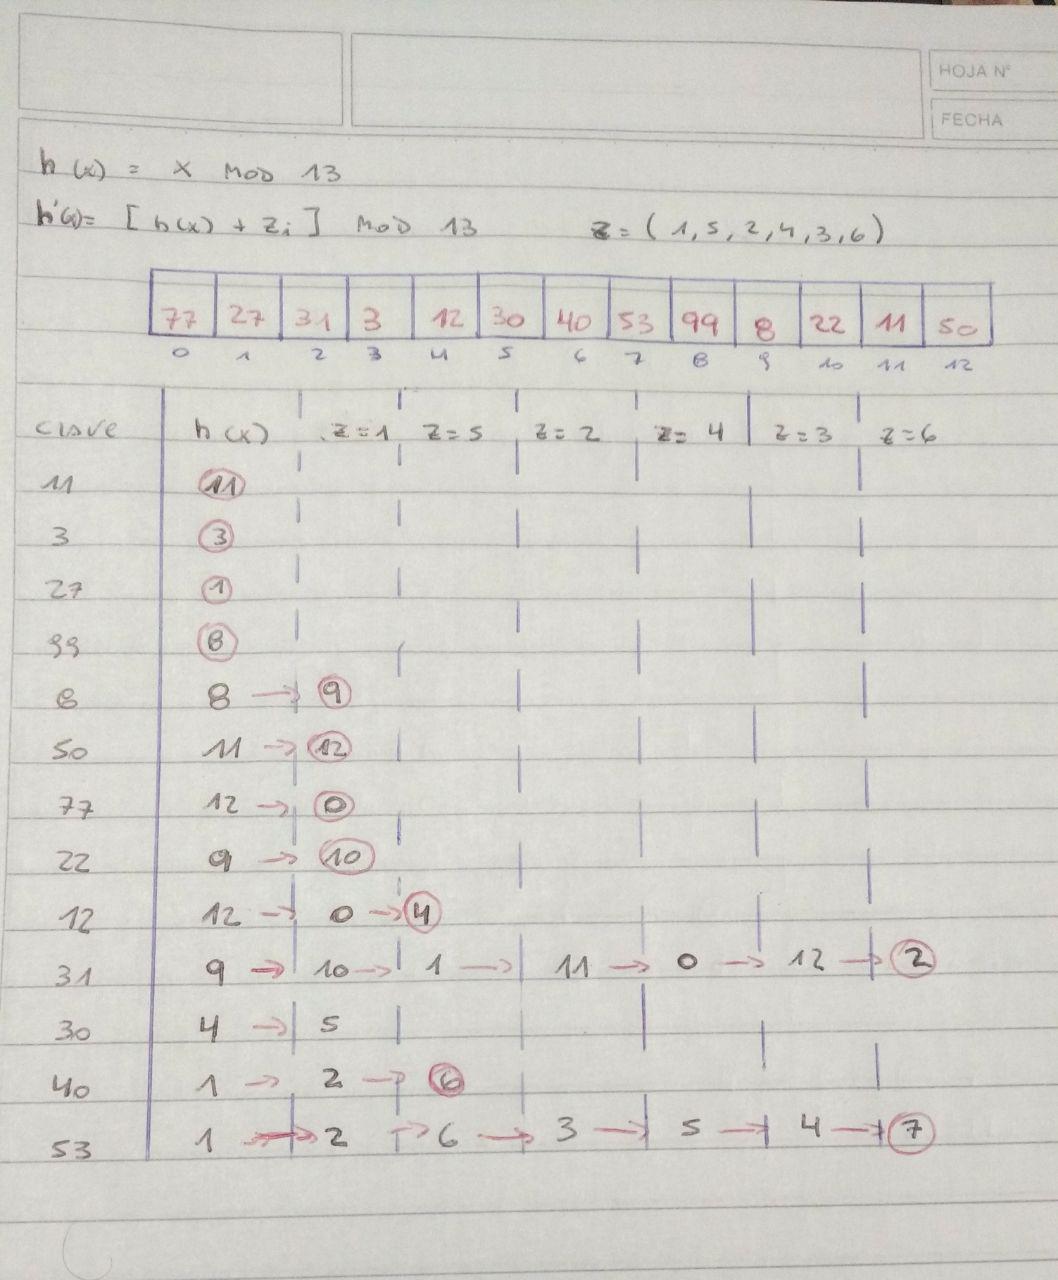 HOJA N°
FECHA
h(x) = x MOD 13
h'(x) = [h(x) + Zi] MOD 13 Z = (1,5,2,4,3,6)
77 27 31 3 12 30 40 53 99 8 22 11 50
0 1 2 3 4 5 6 7 8 9 10 11 12
Clave h(x) z=1 z=5 z=2 z=4 z=3 z=6
11 11
3 3
27 1
99 8
8 8 → 9
50 11 → 12
77 12 → 0
22 9 → 10
12 12 → 0 → 4
31 9 → 10 → 1 → 11 → 0 → 12 → 2
30 4 → 5
40 1 → 2 → 6
53 1 → 2 → 6 → 3 → 5 → 4 → 7